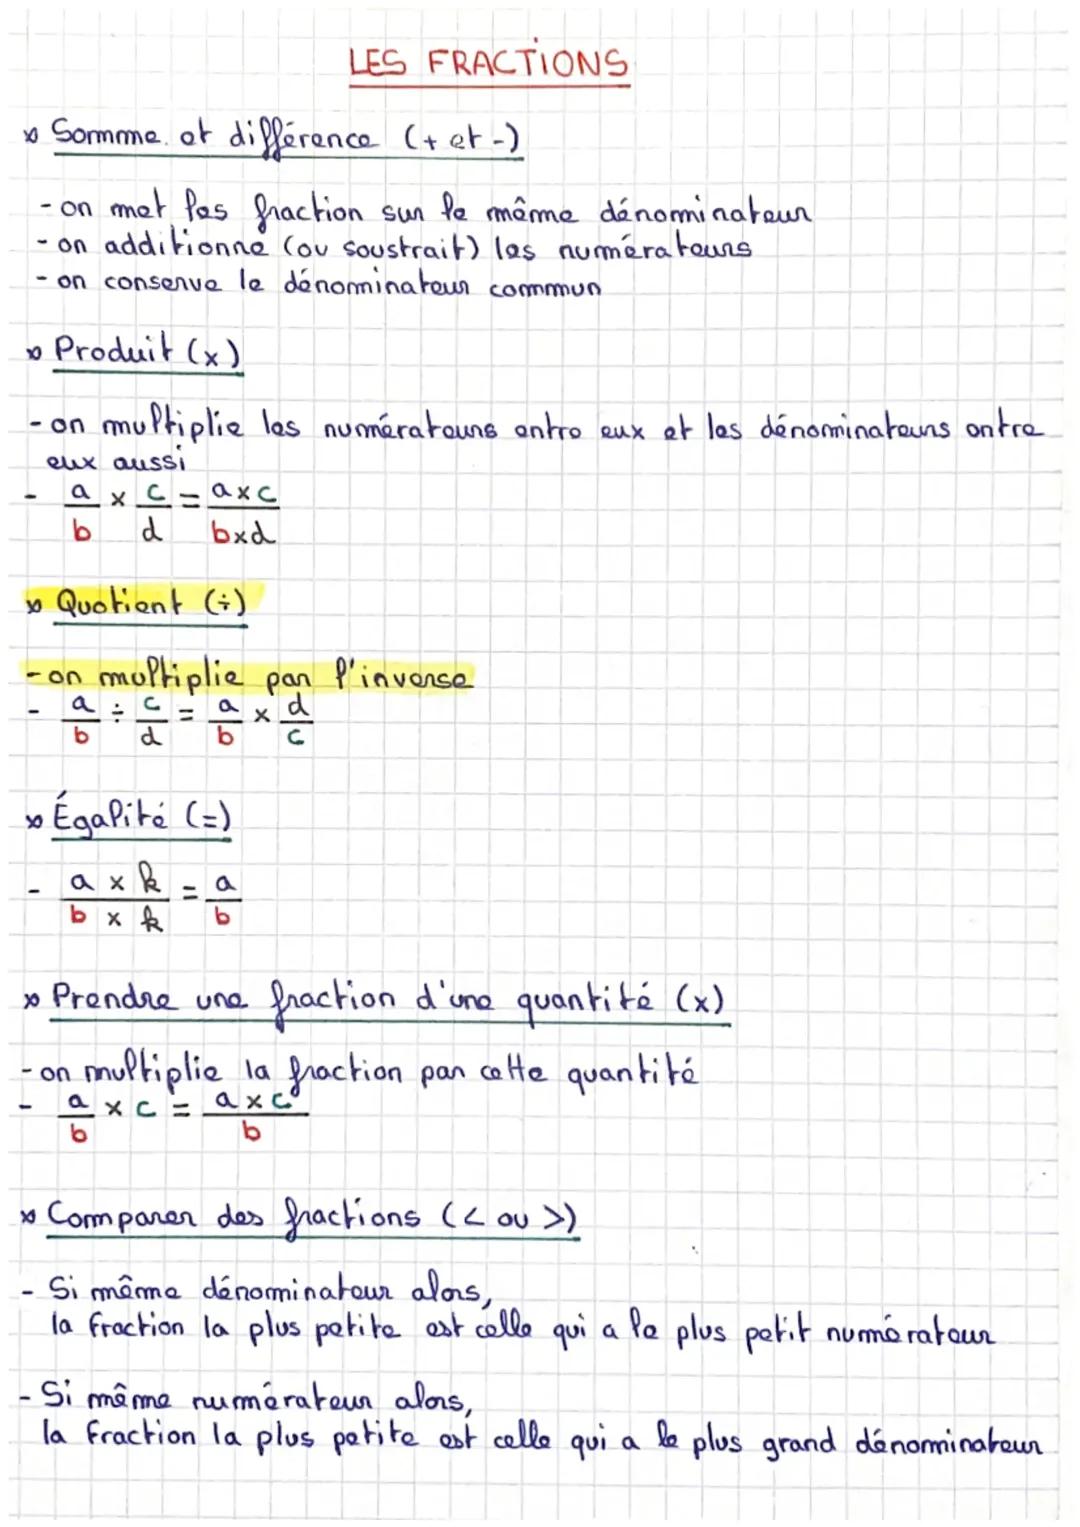 LES FRACTIONS
Somme et différence (+ et -)
- on met les fraction sur le même dénominateur
- on additionne (ou soustrait) les numérateurs
- on conserve le dénominateur commun
Produit (x)
- on multiplie les numérateurs entre eux et les dénominateurs entre
eux aussi
- a/b × c/d = a×c/b×d
Quotient (÷)
- on multiplie par l'inverse
- a/b ÷ c/d = a/b × d/c
Égalité (=)
- a × k/b × k = a/b
Prendre une fraction d'une quantité (x)
- on multiplie la fraction par cette quantité
- a/b × c = a×c/b
Comparer des fractions (< ou >)
- Si même dénominateur alors,
la fraction la plus petite est celle qui a le plus petit numérateur
- Si même numérateur alors,
la fraction la plus petite est celle qui a le plus grand dénominateur